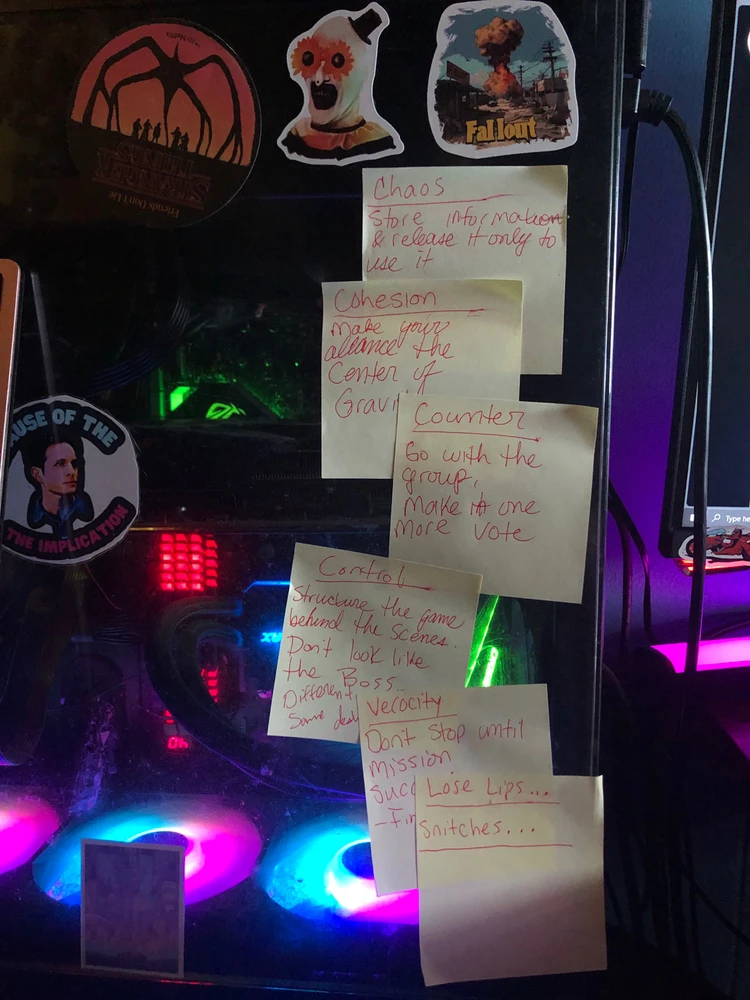 Fallout
STRANGER
THINGS
Friends Don't Lie
Chaos
Store information
& release it only to
use it
Cohesion
Make your
alliance the
Center of
Gravi
USE OF THE
THE IMPLICATION
Counter
Go with the
group,
Make it one
More Vote
Type he
Control
Structure the game
behind the scenes.
Don't look like
the Boss..
Different
Same deal
Verocity
Don't Stop until
mission
Succ
-Fin
Lose Lips...
Snitches...